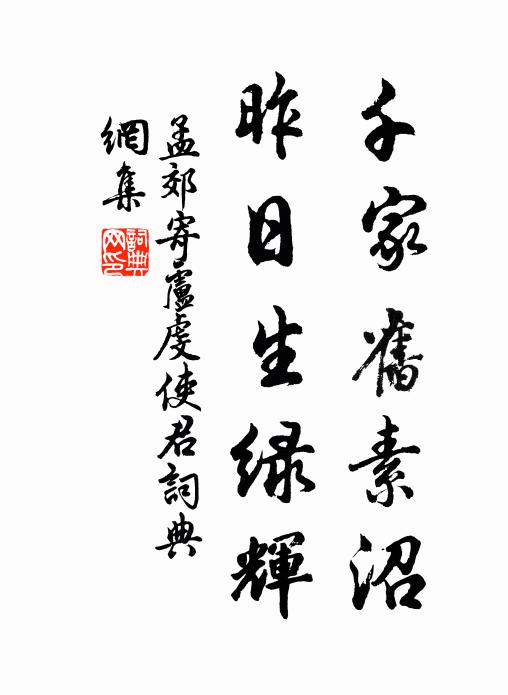 千家舊素沼
昨日生綠輝
孟郊寄盧虔使君詞典
網集
詞典網印